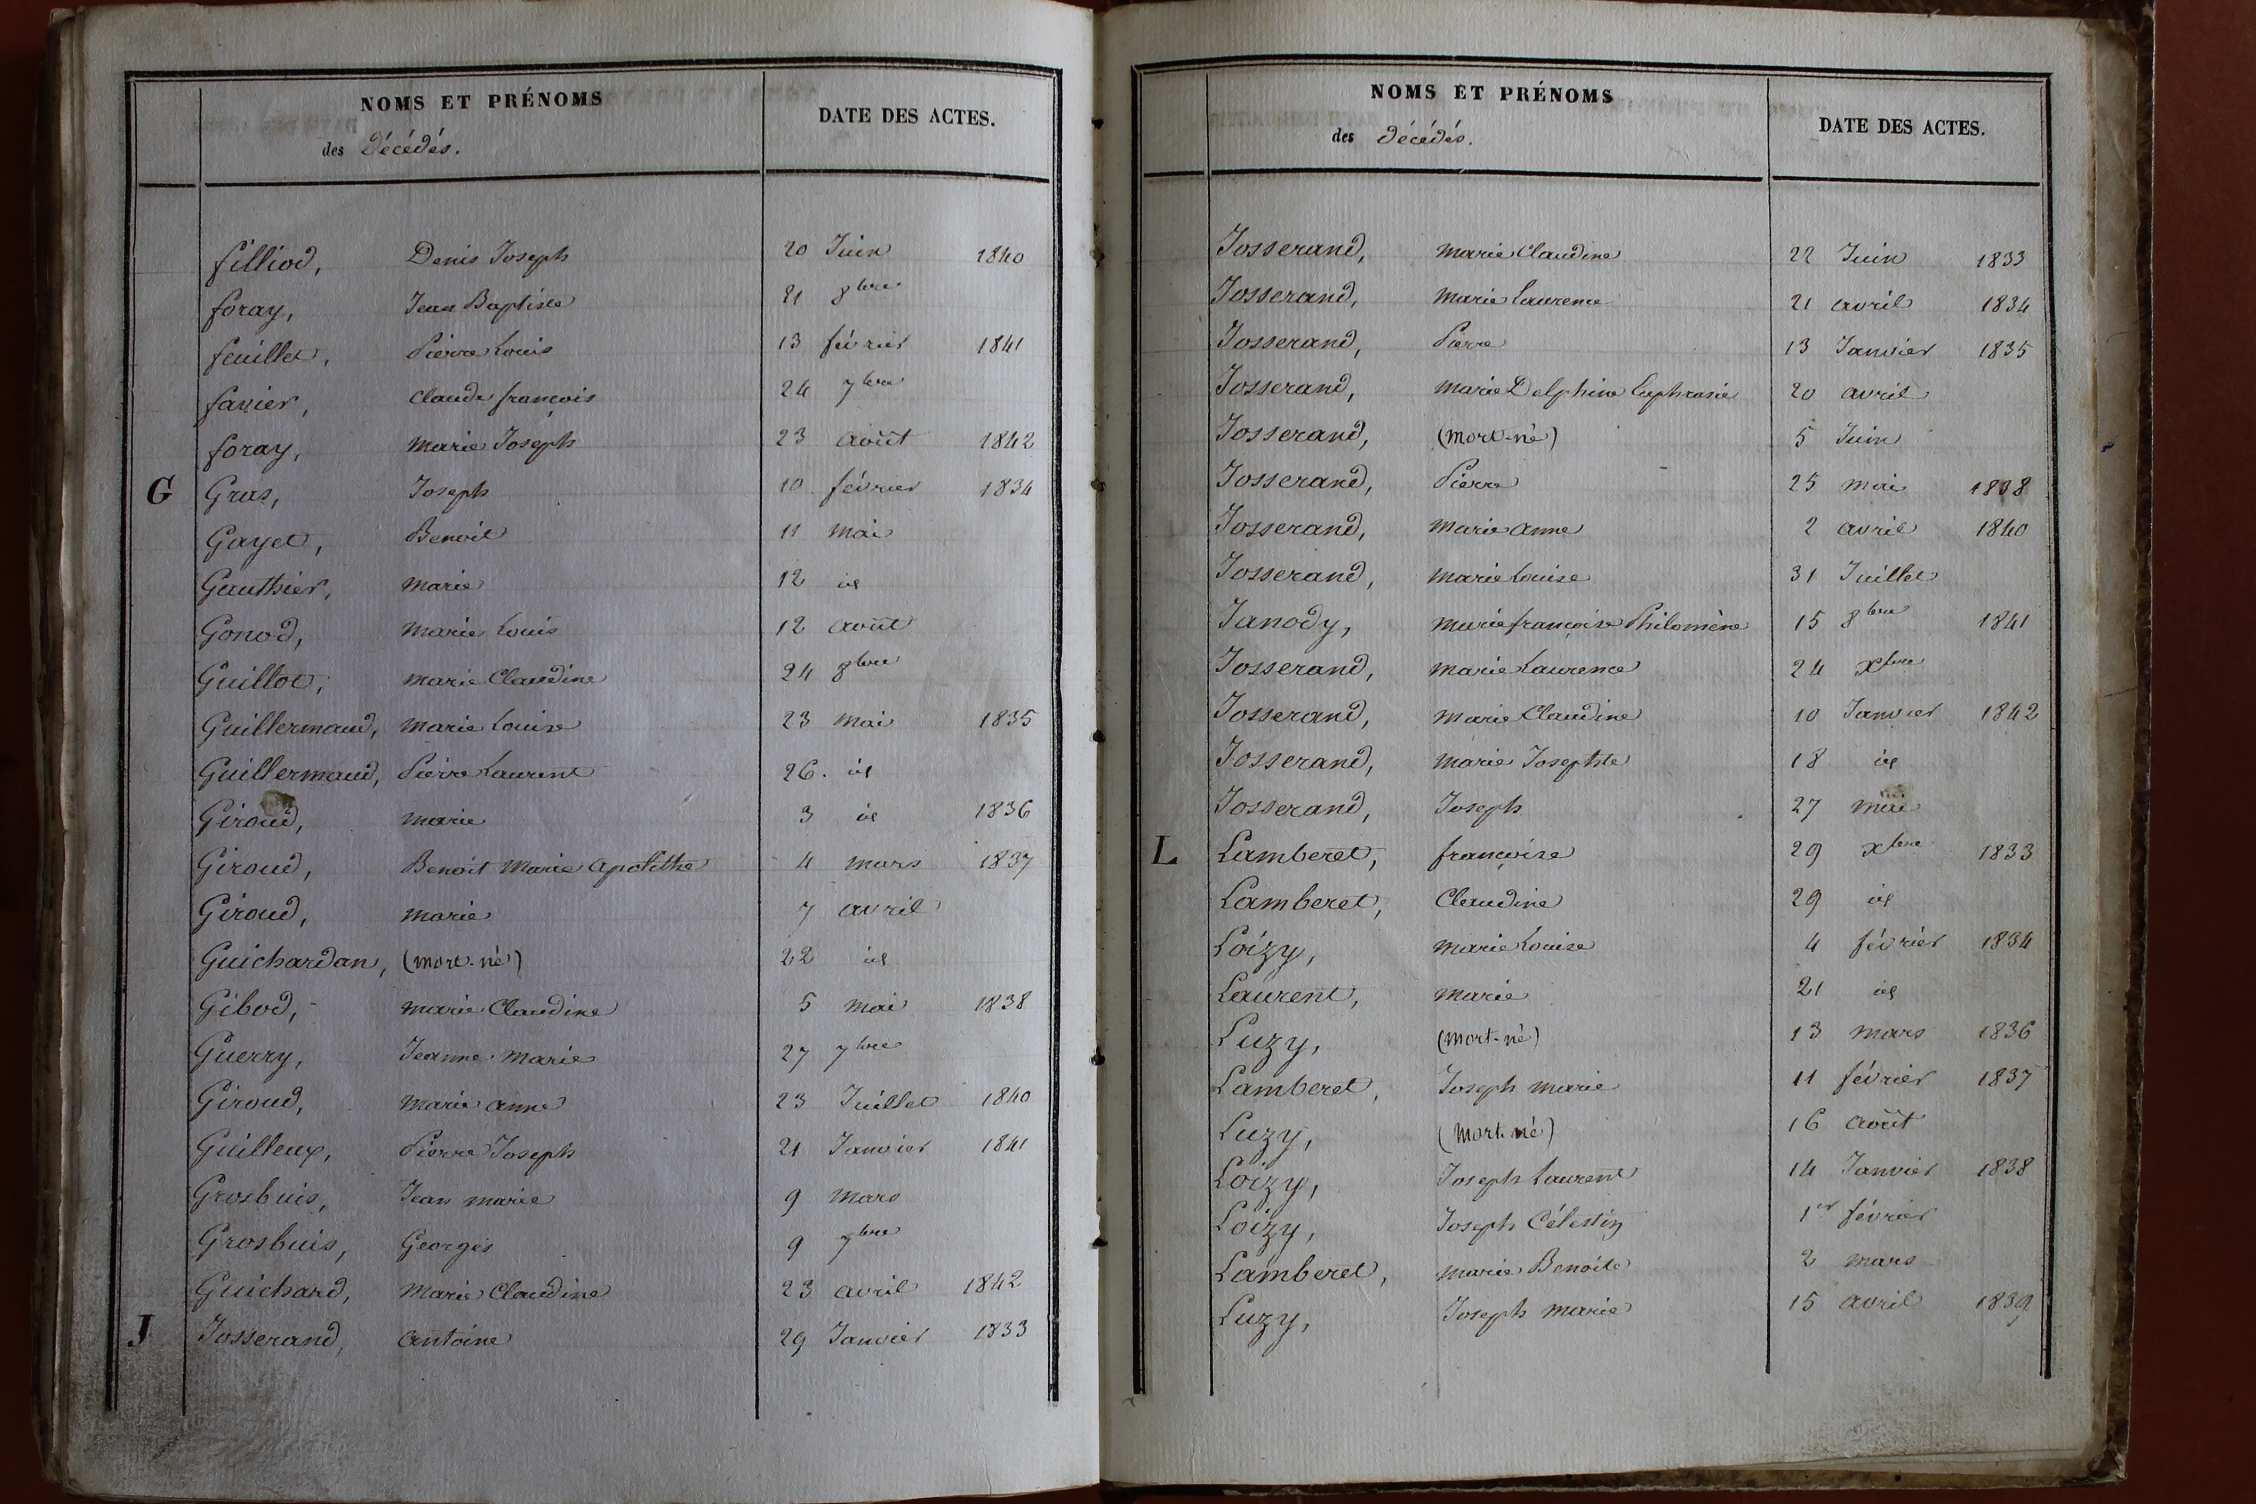 NOMS ET PRÉNOMS
des décédés.
DATE DES ACTES.
filliod, Denis Joseph 20 Juin 1840
foray, Jean Baptiste 21 8bre
feuillet, Pierre Louis 13 février 1841
favier, Claude françois 24 7bre
foray, Marie Joseph 23 août 1842
G Gras, Joseph 10 février 1834
Gayet, Benoit 11 mai
Gauthier, Marie 12 id
Gonod, Marie Louis 12 août
Guillot, Marie Claudine 24 8bre
Guillermaud, Marie Louise 23 mai 1835
Guillermaud, Pierre Laurent 26. id
Giroud, Marie 3 id 1836
Giroud, Benoit Marie 4 mars 1837
Giroud, Marie 7 avril
Guichardan, (mort-né) 22 id
Gibod, Marie Claudine 5 mai 1838
Guerry, Jeanne Marie 27 7bre
Giroud, Marie anne 23 Juillet 1840
Guilleux, Pierre Joseph 21 Janvier 1841
Grosbuis, Jean Marie 9 mars
Grosbuis, Georges 9 7bre
Guichard, Marie Claudine 23 avril 1842
J Josserand, antoine 29 Janvier 1833
NOMS ET PRÉNOMS
des décédés.
DATE DES ACTES.
Josserand, Marie Claudine 22 Juin 1833
Josserand, Marie Laurence 21 avril 1834
Josserand, Pierre 13 Janvier 1835
Josserand, Marie Delphine Euphrasie 20 avril
Josserand, (mort-né) 5 Juin
Josserand, Pierre 25 mai 1838
Josserand, Marie anne 2 avril 1840
Josserand, Marie Louise 31 Juillet
Janody, Marie françoise Philomène 15 8bre 1841
Josserand, Marie Laurence 24 Xbre
Josserand, Marie Claudine 10 Janvier 1842
Josserand, Marie Josephte 18 id
Josserand, Joseph 27 mai
L Lamberet, françoise 29 Xbre 1833
Lamberet, Claudine 29 id
Loizy, Marie Louise 4 février 1834
Laurent, Marie 21 id
Luzy, (mort-né) 13 mars 1836
Lamberet, Joseph Marie 11 février 1837
Luzy, (mort né) 16 août
Loizy, Joseph Laurent 14 Janvier 1838
Loizy, Joseph Célestin 1er février
Lamberet, Marie Benoite 2 mars
Luzy, Joseph Marie 15 avril 1839